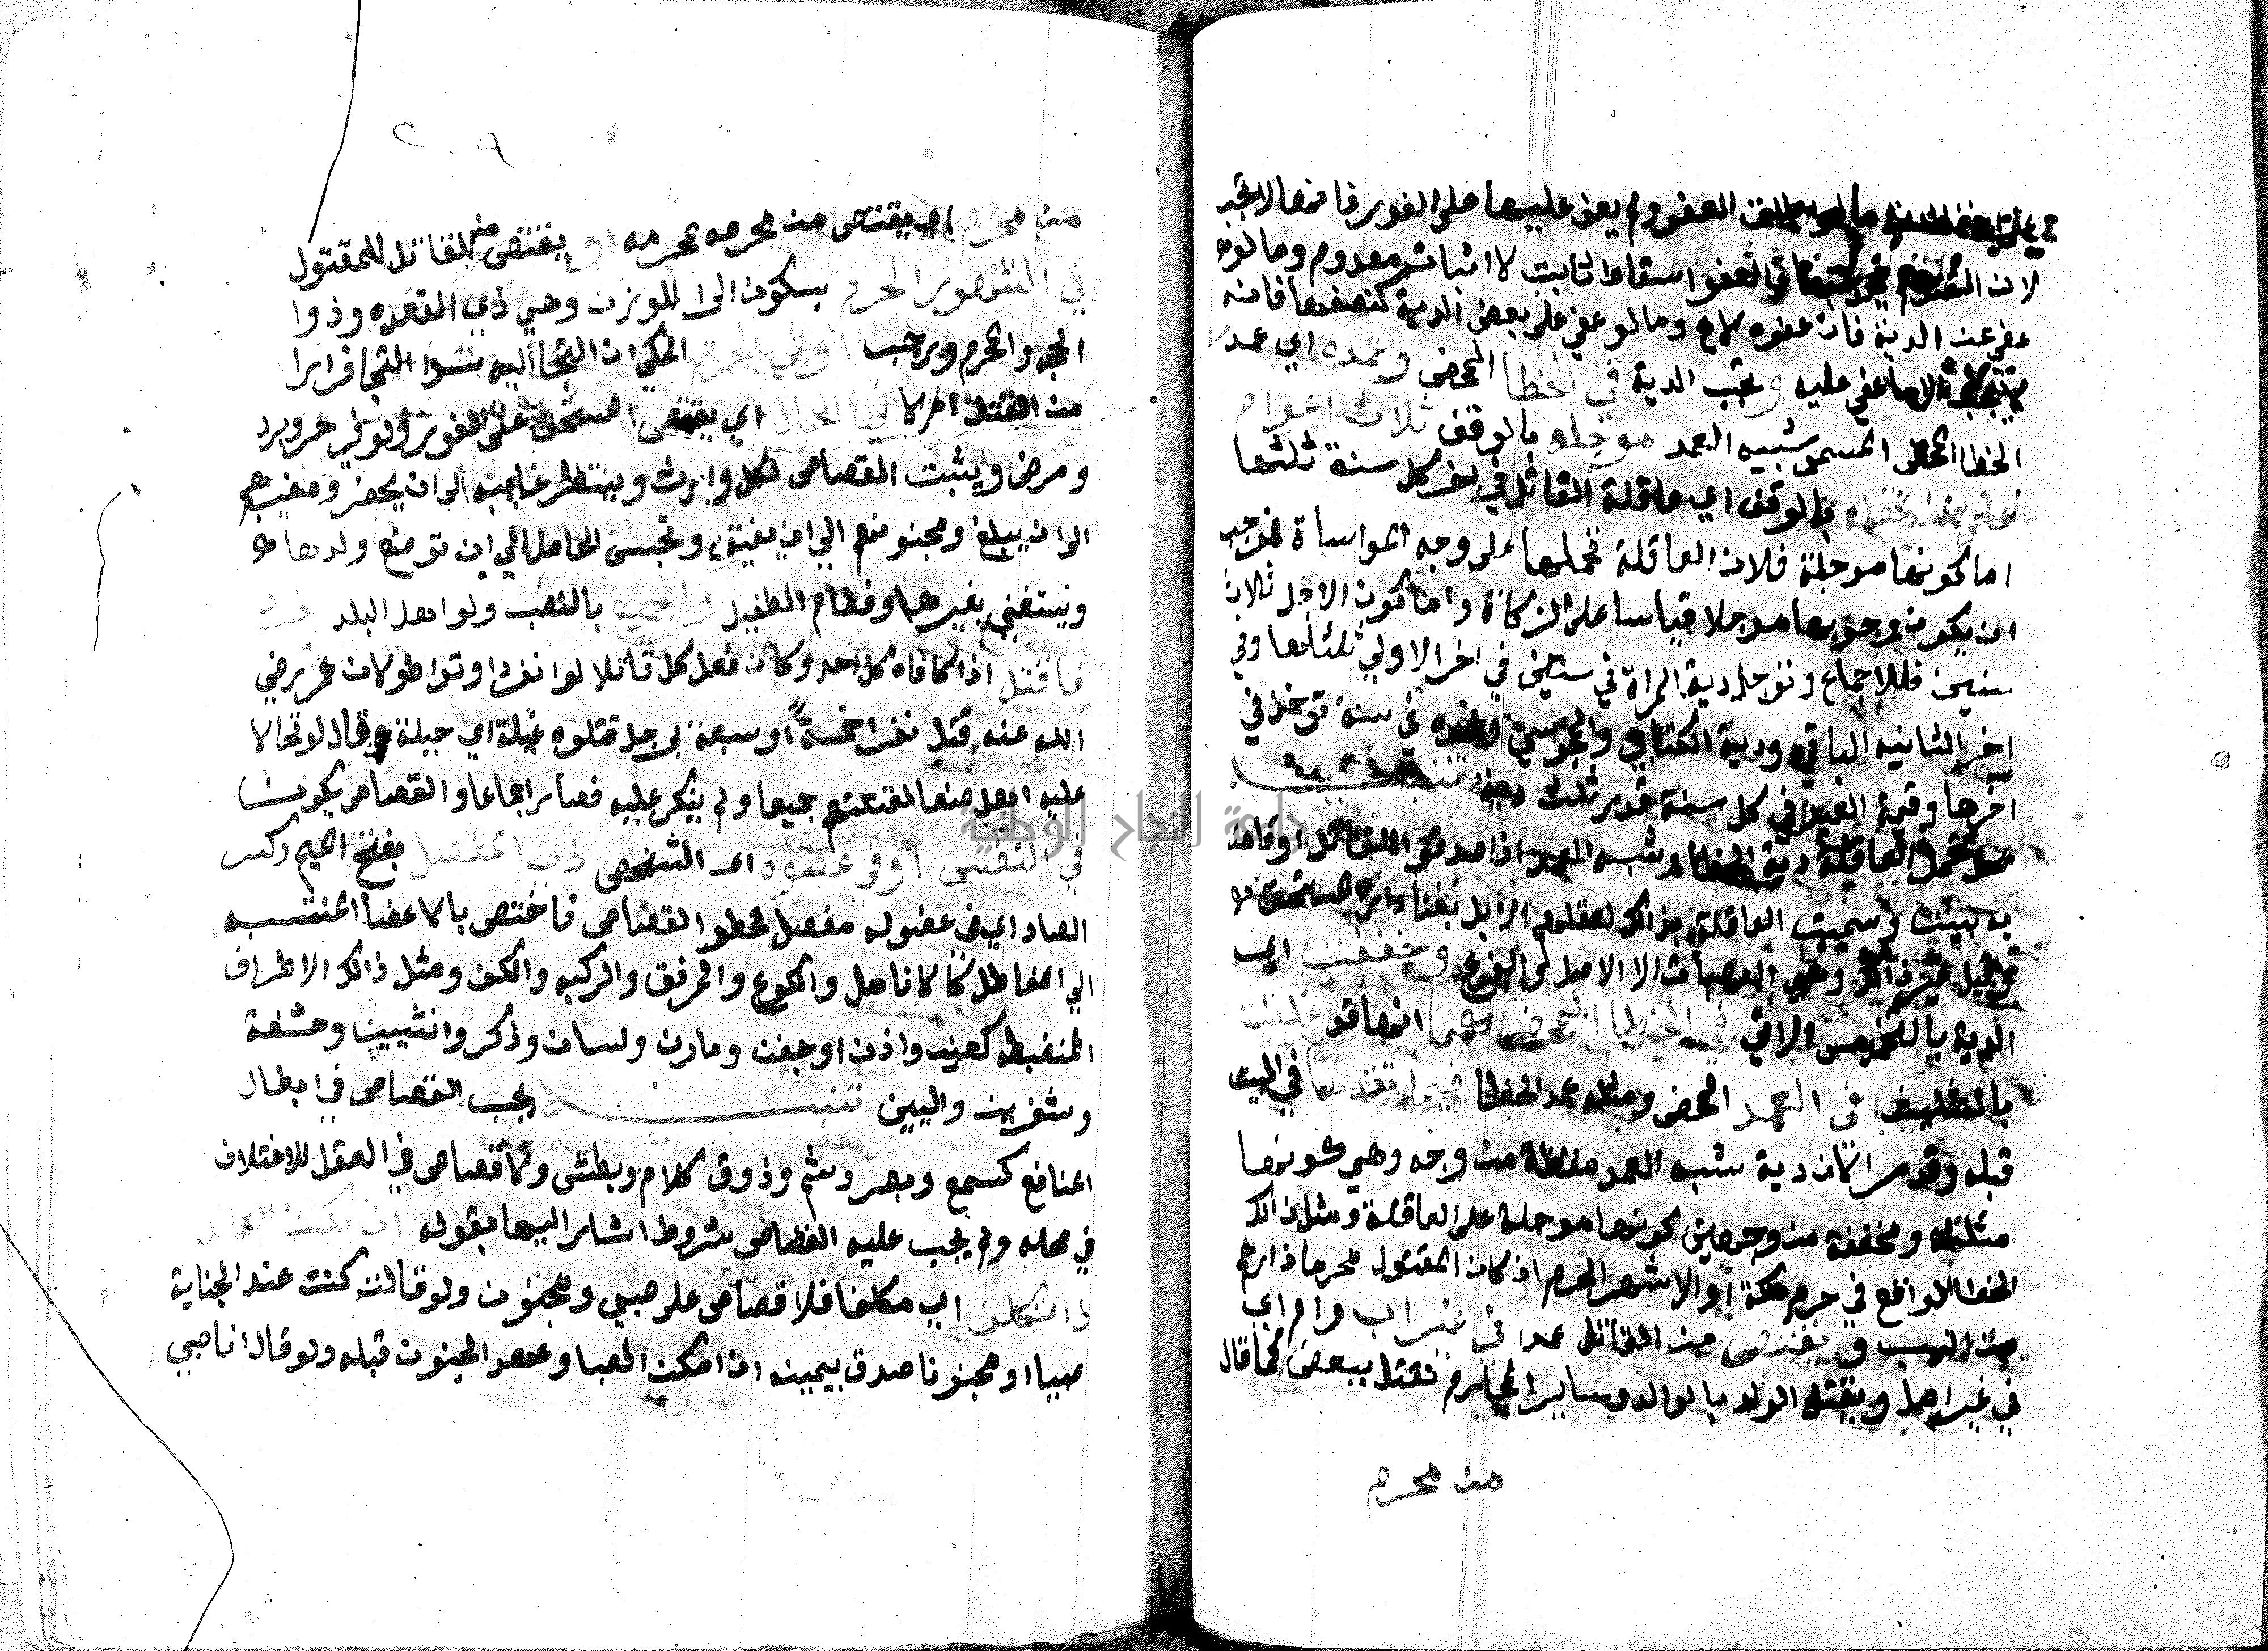 مالو اطلق العفو ولم يعف عليها على الفور فانها لا تجب
لان العفو اسقاط ثابت لا اثبات معدوم ومالو
عفي عن الدية فان عفوه لاغ ومالو عفي على بعض الدية كنصفها فانه
الا ما عفي عليه وتجب الدية في الخطا المحض وعمده اي عمد
الخطا المسمى بشبيه العمد موجله بالوقف ثلاث اعوام
بالوقف اي عاقلة القاتل في اخر كل سنة ثلثها
اما كونها موجلة فلان العاقلة تحملها على وجه المواساة فوجب
ان يكون وجوبها موجلا قياسا على الزكاة واما كون الاجل ثلاث
سنين فللاجماع وتوجل دية المراة في سنتين في اخر الاولي ثلثاها وفي
اخر الثانيه الباقي ودية الكتابي والمجوسي ونحوه في سنة توخذ في
اخرها وقيمة العبد في كل سنة قدر ثلث دية تنبيه
تحمل العاقلة دية الخطا وشبه العمد اذا صدقوا القاتل او قامت
به بينة وسميت العاقلة بذالك لعقلهم الابل بفنا دار المستحق
وقيل غير ذالك وهي العصبات الا الاصل والفرع وخففت اي
الدية بالتخميس الاتي في الخطا المحض كما انها قد غلظت
بالتثليث في العمد المحض ومثله عمد الخطا فيما تقدما في البيت
قبله وقد مر لك ان دية شبه العمد مغلظة من وجه وهي كونها
مثلثة ومخففة من وجهين كونها موجلة على العاقلة ومثل ذالك
الخطا الواقع في حرم مكة او الاشهر الحرم اذ كان المقتول محرما ذا رحم
من النسب و يقتص من القاتل عمدا في غير اب وام اي
في غير اصل ويقتل الولد بالوالد وساير المحارم تقتل ببعض كما قال
من محرم
٢٠٩
من محرم اي يقتص من محرمه بمحرمه او يقتص من القاتل للمقتول
في الشهور الحرم بسكون الرا للوزن وهي ذي القعده وذوا
الحجه والمحرم ورجب او في الحرم المكي ان التجا اليه سوا التجا فرارا
من القتل ام لا في الحال اي يقتص المستحق على الفور ولو في حر وبرد
ومرض ويثبت القصاص لكل وارث وينتظر غايبه الى ان يحضر وصبيهم
الى ان يبلغ ومجنونهم الي ان يفيق وتحبس الحامل الي ان ترضع ولدها
ويستغني بغيرها وفطام الطفيل والجميع بالنصب ولو اهل البلد
فاقتل اذا كافاه كل احد وكان فعل كل قاتلا لو انفرد او تواطوا لان عمر رضي
الله عنه قتل نفرا خمسةً او سبعة برجل قتلوه غيلة اي حيلة وقال لو تمالا
عليه اهل صنعا لقتلتهم جميعا ولم ينكر عليه فصار اجماعا والقصاص يكون
في النفس او في عضوه اى الشخص ذي المفصل بفتح الميم وكسر
الصاد اي في عضو له مفصل القصاص فاختص بالاعضا المنتسبه
الي المفاصل كالانامل والكوع والمرفق والركبه والكف ومثل ذالك الاطراف
المنضبطه كعين واذن او جفن ومارن ولسان وذكر وانثيين وحشفة
وشفرين واليين تنبيه يجب القصاص في ابطال
المنافع كسمع وبصر وشم وذوق كلام وبطش ولا قصاص في العقل للاختلاف
في محله ولم يجب عليه القصاص شروط اشار اليها بقوله ان يكن القاتل
ذا تكلف اي مكلفا فلا قصاص على صبي ومجنون ولو قال انه كنت عند الجناية
صبيا او مجنونا صدق بيمينه ان امكن الصبا وعهد الجنون قبله ولو قال انا صبي